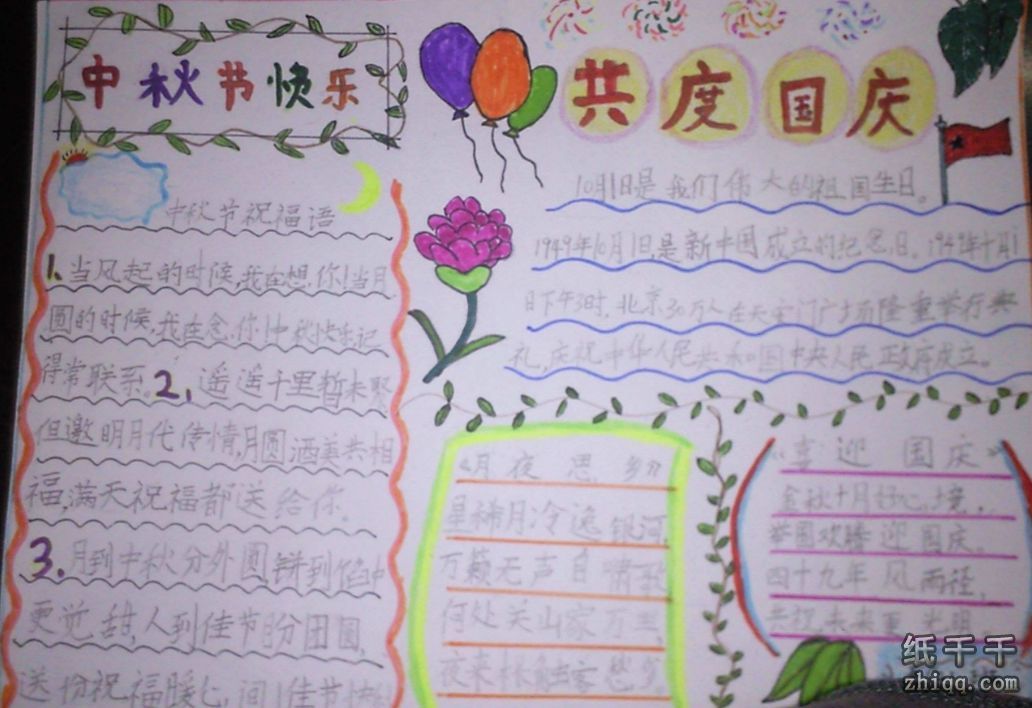 中秋节快乐
中秋节祝福语
1、当风起的时候,我在想你!当月
圆的时候,我在念你!中秋快乐记
得常联系。2、遥遥千里暂未聚
但邀明月代传情,月圆酒美共相
福,满天祝福都送给你。
3、月到中秋分外圆,饼到馅中
更觉甜,人到佳节盼团圆,
送份祝福暖心间!佳节快
共度国庆
10月1日是我们伟大的祖国生日。
1949年10月1日,是新中国成立的纪念日。1949年十月1
日下午3时,北京30万人在天安门广场隆重举行典
礼,庆祝中华人民共和国中央人民政府成立。
《月夜思乡》
星稀月冷逸银河,
万籁无声自啸歌
何处关山家万里,
夜来枨触客愁多
《喜迎国庆》
金秋十月好心境,
举国欢腾迎国庆。
四十九年风雨径,
共祝未来更光明
纸千千
zhiqq.com